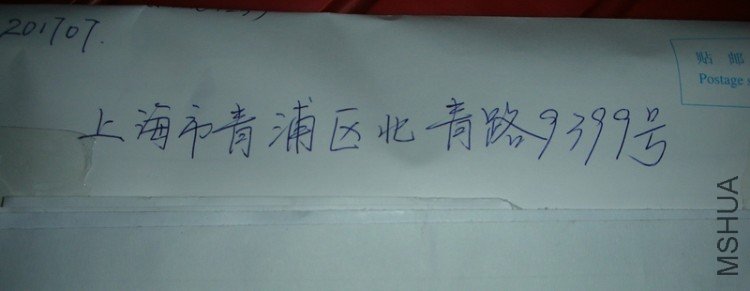 201707.
贴 邮
Postage
上海市青浦区北青路9399号
MSHUA